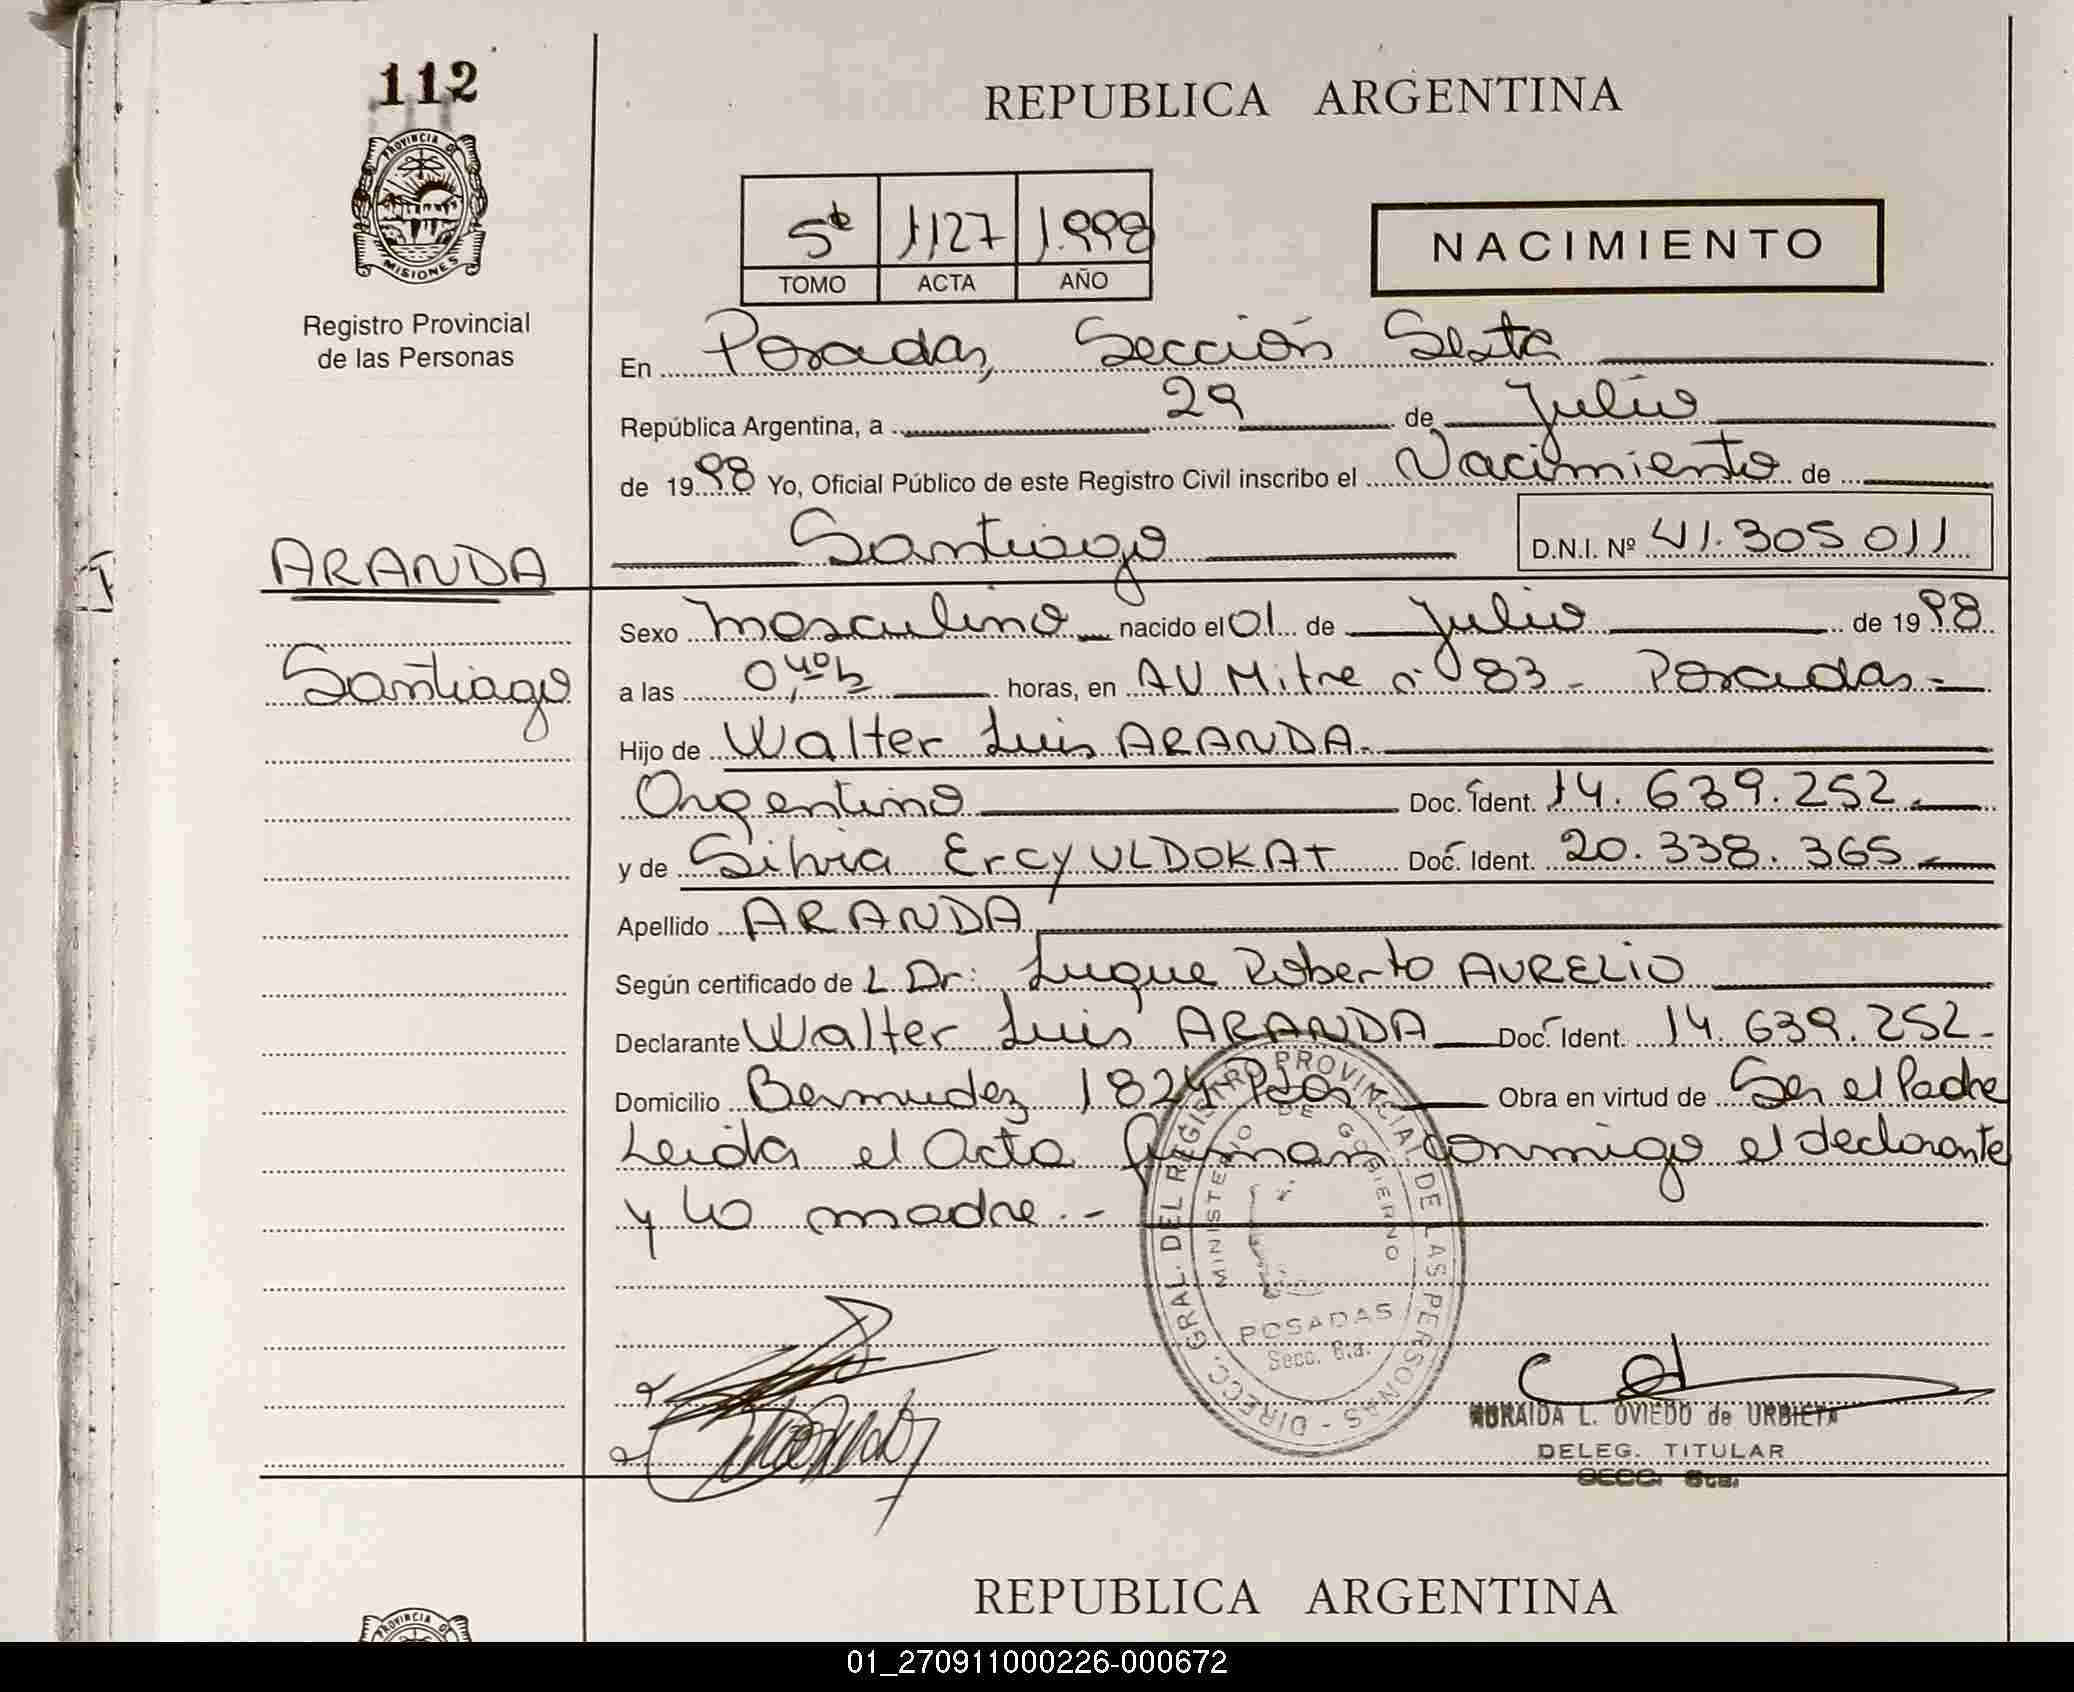 112
PROVINCIA DE
MISIONES
Registro Provincial
de las Personas
REPUBLICA ARGENTINA
5º 1127 1.998
TOMO ACTA AÑO
NACIMIENTO
En Posadas, Sección Sexta
República Argentina, a 29 de Julio
de 1998 Yo, Oficial Público de este Registro Civil inscribo el Nacimiento de
Santiago D.N.I. Nº 41.305.011
ARANDA
Santiago
Sexo Masculino nacido el 01 de Julio de 1998
a las 0,40 h horas, en AV Mitre nº 83 - Posadas -
Hijo de Walter Luis ARANDA.
Argentino Doc. Ident. 14.639.252.
y de Silvia Ercy ULDOKAT Doc. Ident. 20.338.365
Apellido ARANDA
Según certificado de L Dr: Luque Roberto AURELIO
Declarante Walter Luis ARANDA Doc. Ident. 14.639.252-
Domicilio Bermudez 1824 Pdas Obra en virtud de Ser el Padre
Leida el Acta firman conmigo el declarante
y la madre.-
DIRECC. GRAL. DEL REGISTRO PROVINCIAL DE LAS PERSONAS -
MINISTERIO DE GOBIERNO
POSADAS
Secc. 6.a.
L. OVIEDO de URBIETA
DELEG. TITULAR
SECC. 6ta.
REPUBLICA ARGENTINA
PROVINCIA
01_270911000226-000672